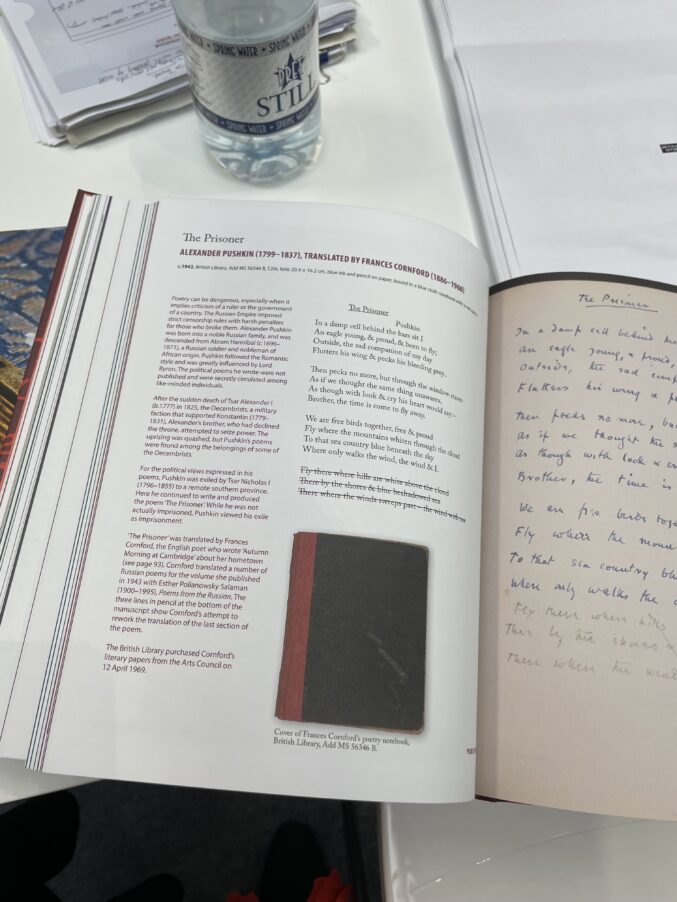 SPRING WATER • SPRING WATER
PRET
STILL
SPRING WATER
The Prisoner
ALEXANDER PUSHKIN (1799–1837), TRANSLATED BY FRANCES CORNFORD (1886–1960)
c.1942, British Library, Add MS 56346 B, f.20r, folio 20.4 × 16.2 cm, blue ink and pencil on paper, bound in a blue cloth notebook with a red spine
Poetry can be dangerous, especially when it
implies criticism of a ruler or the government
of a country. The Russian Empire imposed
strict censorship rules with harsh penalties
for those who broke them. Alexander Pushkin
was born into a noble Russian family, and was
descended from Abram Hannibal (c.1696–
1871), a Russian soldier and nobleman of
African origin. Pushkin followed the Romantic
style and was greatly influenced by Lord
Byron. The political poems he wrote were not
published and were secretly circulated among
like-minded individuals.
After the sudden death of Tsar Alexander I
(b.1777) in 1825, the Decembrists, a military
faction that supported Konstantin (1779–
1831), Alexander's brother, who had declined
the throne, attempted to seize power. The
uprising was quashed, but Pushkin's poems
were found among the belongings of some of
the Decembrists.
For the political views expressed in his
poems, Pushkin was exiled by Tsar Nicholas I
(1796–1855) to a remote southern province.
Here he continued to write and produced
the poem 'The Prisoner'. While he was not
actually imprisoned, Pushkin viewed his exile
as imprisonment.
'The Prisoner' was translated by Frances
Cornford, the English poet who wrote 'Autumn
Morning at Cambridge' about her hometown
(see page 93). Cornford translated a number of
Russian poems for the volume she published
in 1943 with Esther Polianowsky Salaman
(1900–1995), Poems from the Russian. The
three lines in pencil at the bottom of the
manuscript show Cornford's attempt to
rework the translation of the last section of
the poem.
The British Library purchased Cornford's
literary papers from the Arts Council on
12 April 1969.
The Prisoner
Pushkin
In a damp cell behind the bars sit I
An eagle young, & proud, & born to fly;
Outside, the sad companion of my day
Flutters his wing & pecks his bleeding prey.
Then pecks no more, but through the window stares
As if we thought the same thing unawares,
As though with look & cry his heart would say–
Brother, the time is come to fly away.
We are free birds together, free & proud
Fly where the mountains whiten through the cloud
To that sea country blue beneath the sky
Where only walks the wind, the wind & I.
Fly there where hills are white above the cloud
There by the shores & blue beshadowed sea
There where the winds sweeps past – the wind with me
Cover of Frances Cornford's poetry notebook,
British Library, Add MS 56346 B.
The Prisoner
In a damp cell behind
an eagle young, & proud,
Outside, the sad
Flutters his wing &
Then pecks no more, but
as if we thought the
as though with look &
Brother, the time is
We are free birds
Fly where the
To that sea country
Where only walks the
Fly there where hills
There by the shores
There where the